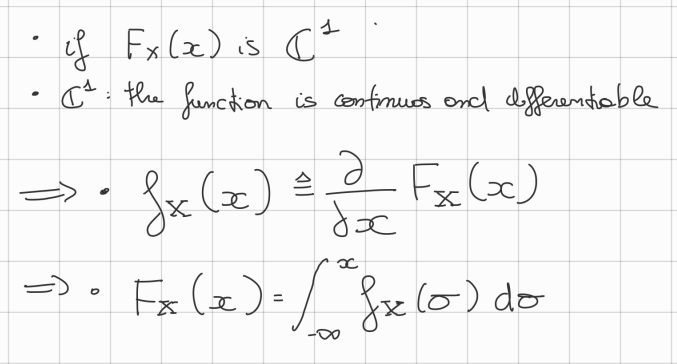 · if Fx(x) is ℂ¹
· ℂ¹: the function is continuos and differentiable
⟹ · fx(x) ≜ ∂/∂x Fx(x)
⟹ · Fx(x) = ∫_{-∞}^{x} fx(σ) dσ